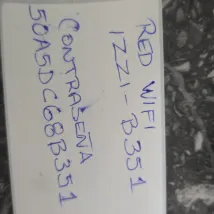 RED WIFI
IZZI-B351
CONTRASEÑA
50A5DC68B351